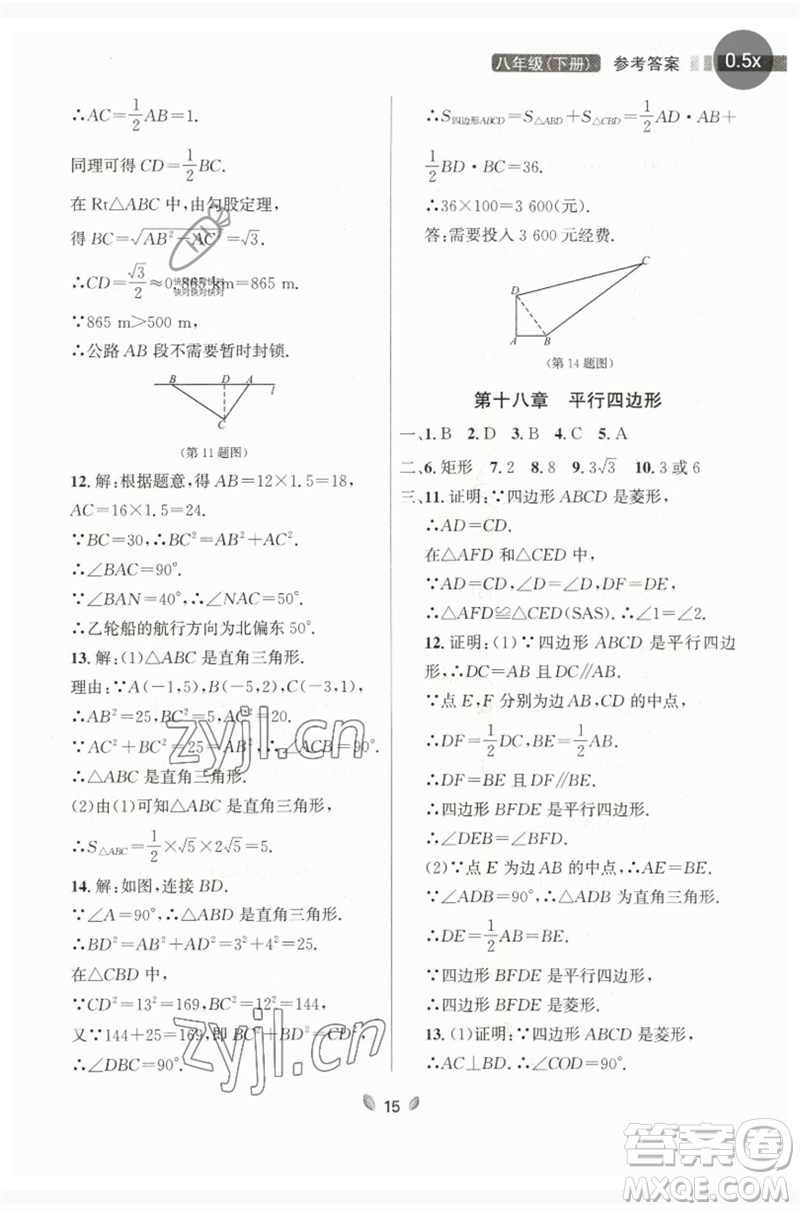 八年级(下册) 参考答案 0.5x
∴AC=1/2AB=1.
同理可得 CD=1/2BC.
在 Rt△ABC 中,由勾股定理,
得 BC=√(AB²-AC²)=√3.
∴CD=√3/2≈0.865 km=865 m.
快对快对快对
快对快对快对
∵865 m>500 m,
∴公路 AB 段不需要暂时封锁.
B D A l
C
(第 11 题图)
12. 解:根据题意,得 AB=12×1.5=18,
AC=16×1.5=24.
∵BC=30,∴BC²=AB²+AC².
∴∠BAC=90°.
∵∠BAN=40°,∴∠NAC=50°.
∴乙轮船的航行方向为北偏东 50°.
13. 解:(1)△ABC 是直角三角形.
理由:∵A(-1,5),B(-4,1),C(-3,
∴AB²=25,BC²=5,AC²=20.
∵AC²+BC²=AB²,∴∠ACB=90°.
∴△ABC 是直角三角形.
(2)由(1)可知△ABC 是直角三角形,
∴S△ABC=1/2×√5×2√5=5.
14. 解:如图,连接 BD.
∵∠A=90°,∴△ABD 是直角三角形.
∴BD²=AB²+AD²=3²+4²=25.
在△CBD 中,
∵CD²=13²=169,BC²=12²=144,
又∵144+25=169,即 BC²+BD²=CD²,
∴∠DBC=90°.
∴S四边形ABCD=S△ABD+S△CBD=1/2AD·AB+
1/2BD·BC=36.
∴36×100=3 600(元).
答:需要投入 3 600 元经费.
C
D
A B
(第 14 题图)
第十八章 平行四边形
一、1. B 2. D 3. B 4. C 5. A
二、6. 矩形 7. 2 8. 8 9. 3√3 10. 3 或 6
三、11. 证明:∵四边形 ABCD 是菱形,
∴AD=CD.
在△AFD 和△CED 中,
∵AD=CD,∠D=∠D,DF=DE,
∴△AFD≌△CED(SAS). ∴∠1=∠2.
12. 证明:(1)∵四边形 ABCD 是平行四边
形,∴DC=AB 且 DC∥AB.
∵点 E,F 分别为边 AB,CD 的中点,
∴DF=1/2DC,BE=1/2AB.
∴DF=BE 且 DF∥BE.
∴四边形 BFDE 是平行四边形.
∴∠DEB=∠BFD.
(2)∵点 E 为边 AB 的中点,∴AE=BE.
∵∠ADB=90°,∴△ABD 是直角三角形.
∴DE=1/2AB=BE.
∵四边形 BFDE 是平行四边形,
∴四边形 BFDE 是菱形.
13. (1)证明:∵四边形 ABCD 是菱形,
∴AC⊥BD. ∴∠COD=90°.
15
zyjl.cn
zyjl.cn
答案卷
MXQE.COM